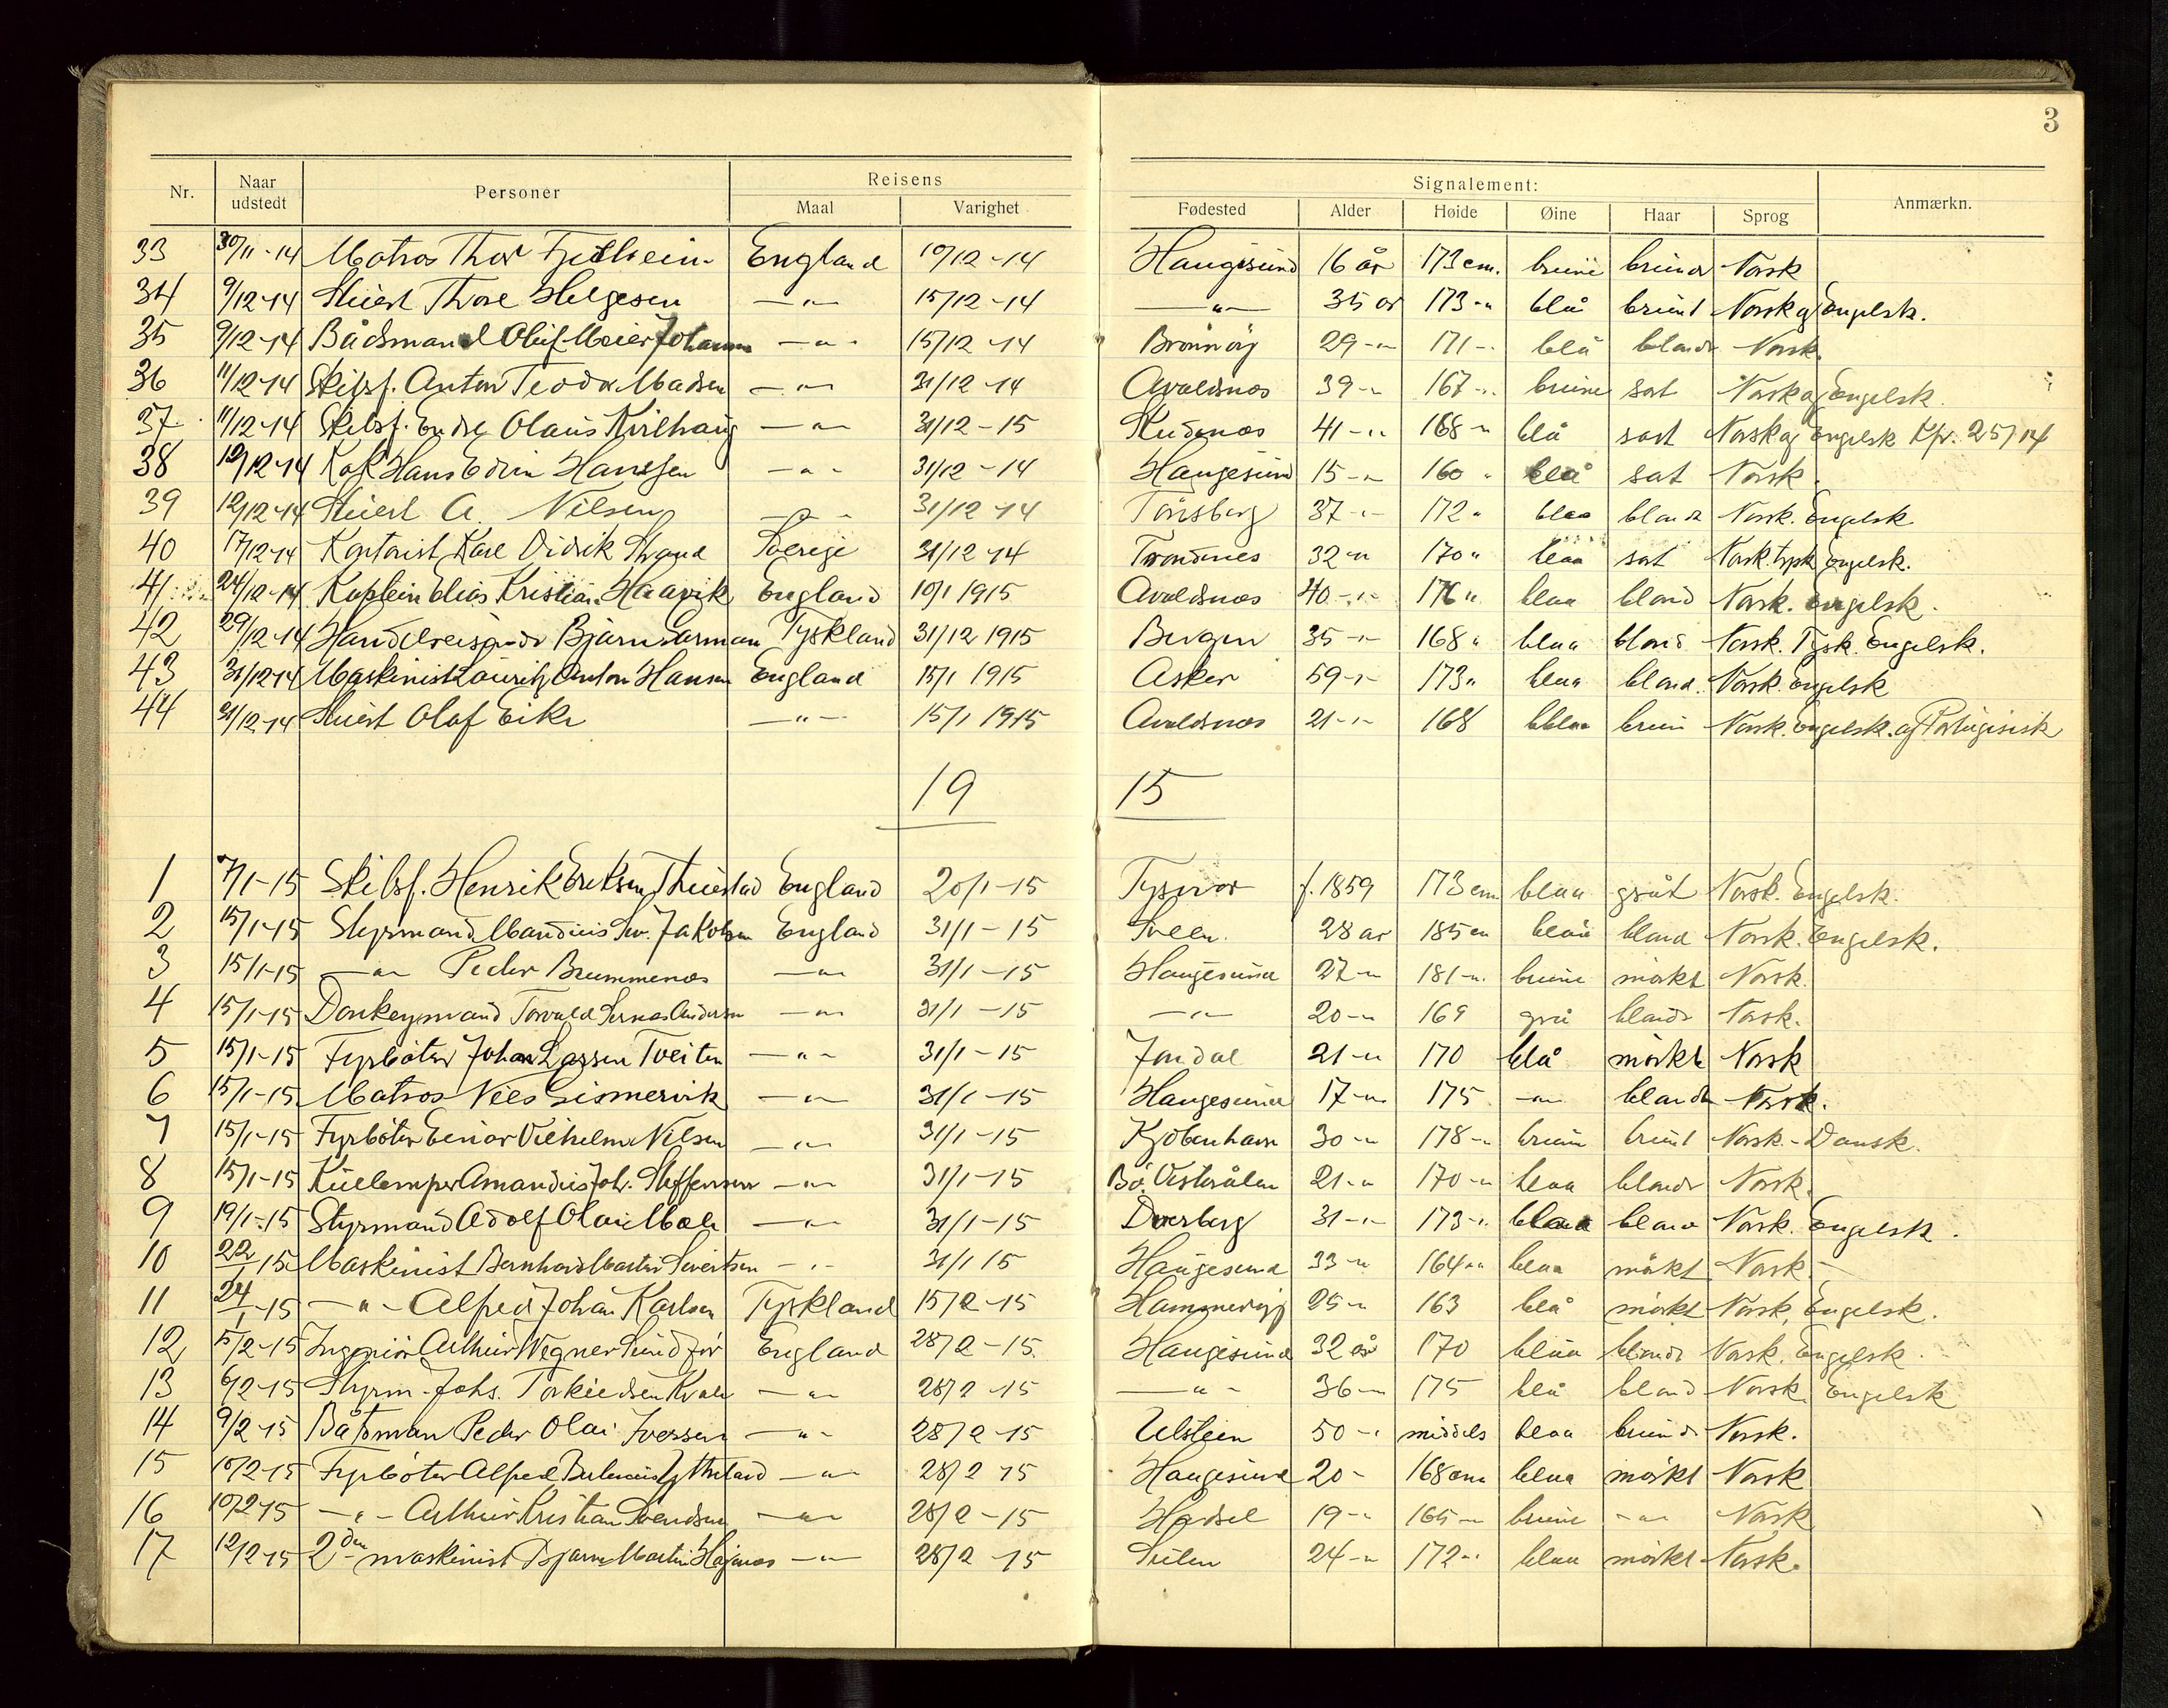 3
Reisens Signalement:
Nr. Naar udstedt Personer Maal Varighet Fødested Alder Høide Øine Haar Sprog Anmærkn.
33 30/11-14 Matros Thor England 10/12-14 Haugesund 16 år 173 cm. brune Norsk
34 9/12-14 Stuert Thore Helgesen —"— 15/12-14 —"— 35 år 173-" blå brunt Norsk og Engelsk.
35 9/12-14 Bådsmand Oluf Meier —"- 15/12-14 Brönnöy 29-" 171-" blå blondt Norsk.
36 11/12-14 Skibsf. Anton Teodor Madsen —"— 31/12-14 Avaldsnes 39-" 167-" brune sort Norsk og Engelsk.
37 11/12-14 Skibsf. Endre Olaus —"— 31/12-15 Skudenes 41-" 168-" blå sort Norsk og Engelsk Kfr. 25/14
38 12/12-14 Kok Hans Edvin Hansen -"- 31/12-14 Haugesund 15-" 160 " blå sort Norsk.
39 12/12-14 Stuert A. Nilsen —"- 31/12-14 Tönsberg 37-" 172" blaa blondt Norsk. Engelsk.
40 17/12-14 Kontorist Karl Didrik Strand Sverige 31/12-14 Trondenes 32-" 170" blaa sort Norsk. tysk Engelsk.
41 24/12-14 Kaptein Elias Kristian Haavik England 10/1 1915 Avaldsnes 40-"- 176" blaa blond Norsk. engelsk.
42 29/12-14 Handelsreisende Bjarne Tyskland 31/12 1915 Bergen 35-"- 168" blaa blond Norsk. Tysk. Engelsk.
43 31/12-14 Maskinist Lauritz Anton Hansen England 15/1 1915 Asker 59-"- 173" blaa blond. Norsk. Engelsk
44 31/12-14 Stuert Olaf Eike —"— 15/1 1915 Avaldsnes 21-"- 168 blaa brun Norsk. Engelsk. og Portugisisk
19 15
1 7/1-15 Skibsf. Henrik Eriksen England 20/1-15 Tysvær f. 1859 173 cm blaa gråt Norsk. Engelsk.
2 15/1-15 Styrmand Mandius Jakobsen England 31/1-15 Sveen. 28 år 185 cm blaa blond Norsk. Engelsk.
3 15/1-15 —"— Peder Brummenæs —"— 31/1-15 Haugesund 27-" 181-" brune mörkt Norsk.
4 15/1-15 Donkeymand Torvald Andersen —"— 31/1-15 —"— 20-" 169 grå blondt Norsk.
5 15/1-15 Fyrböter Johan Larsen Tveiten —"- 31/1-15 Jondal 21-" 170 blå mörkt Norsk
6 15/1-15 Matros Nils Gismervik —"— 31/1-15 Haugesund 17-" 175 -"- blondt Norsk.
7 15/1-15 Fyrböter Einar Vilhelm Nilsen —"— 31/1-15 Kjöbenhavn 30-" 178-" brune brunt Norsk.-Dansk.
8 15/1-15 Kullemper Amandus Joh. Steffensen —"— 31/1-15 Bö. Vesterålen 21-" 170-" blaa blondt Norsk.
9 19/1-15 Styrmand Adolf Olai —"— 31/1-15 Dverberg 31-"- 173-" blaa blond Norsk. Engelsk.
10 22/1 15 Maskinist Bernhard Martin Sivertsen -"- 31/1 15 Haugesund 33-" 164-" blaa mörkt Norsk.
11 24/1-15 —"- Alfred Johan Karlsen Tyskland 15/2-15 25-" 163 blå mörkt Norsk, Engelsk.
12 5/2-15 Ingeniör Arthur Wegner Sundför England 28/2-15 Haugesund 32 år 170 blaa blondt Norsk. Engelsk.
13 6/2-15 Styrm. Johs. Torkildsen —"— 28/2-15 —"- 36-" 175 blå blond Norsk. Engelsk
14 9/2-15 Båtsman Peder Olai Iversen —"- 28/2-15 Ulstein 50-" middels blaa brundt Norsk.
15 10/2-15 Fyrböter Alfred —"— 28/2-15 Haugesund 20- 168 cm blaa mörkt Norsk
16 10/2-15 —"- Arthur Kristian Svendsen —"— 28/2-15 Hadsel 19-" 165-" brune -"- Norsk
17 12/2-15 2den maskinist Bjarne Martin —"— 28/2-15 24-" 172-" blaa mörkt Norsk.